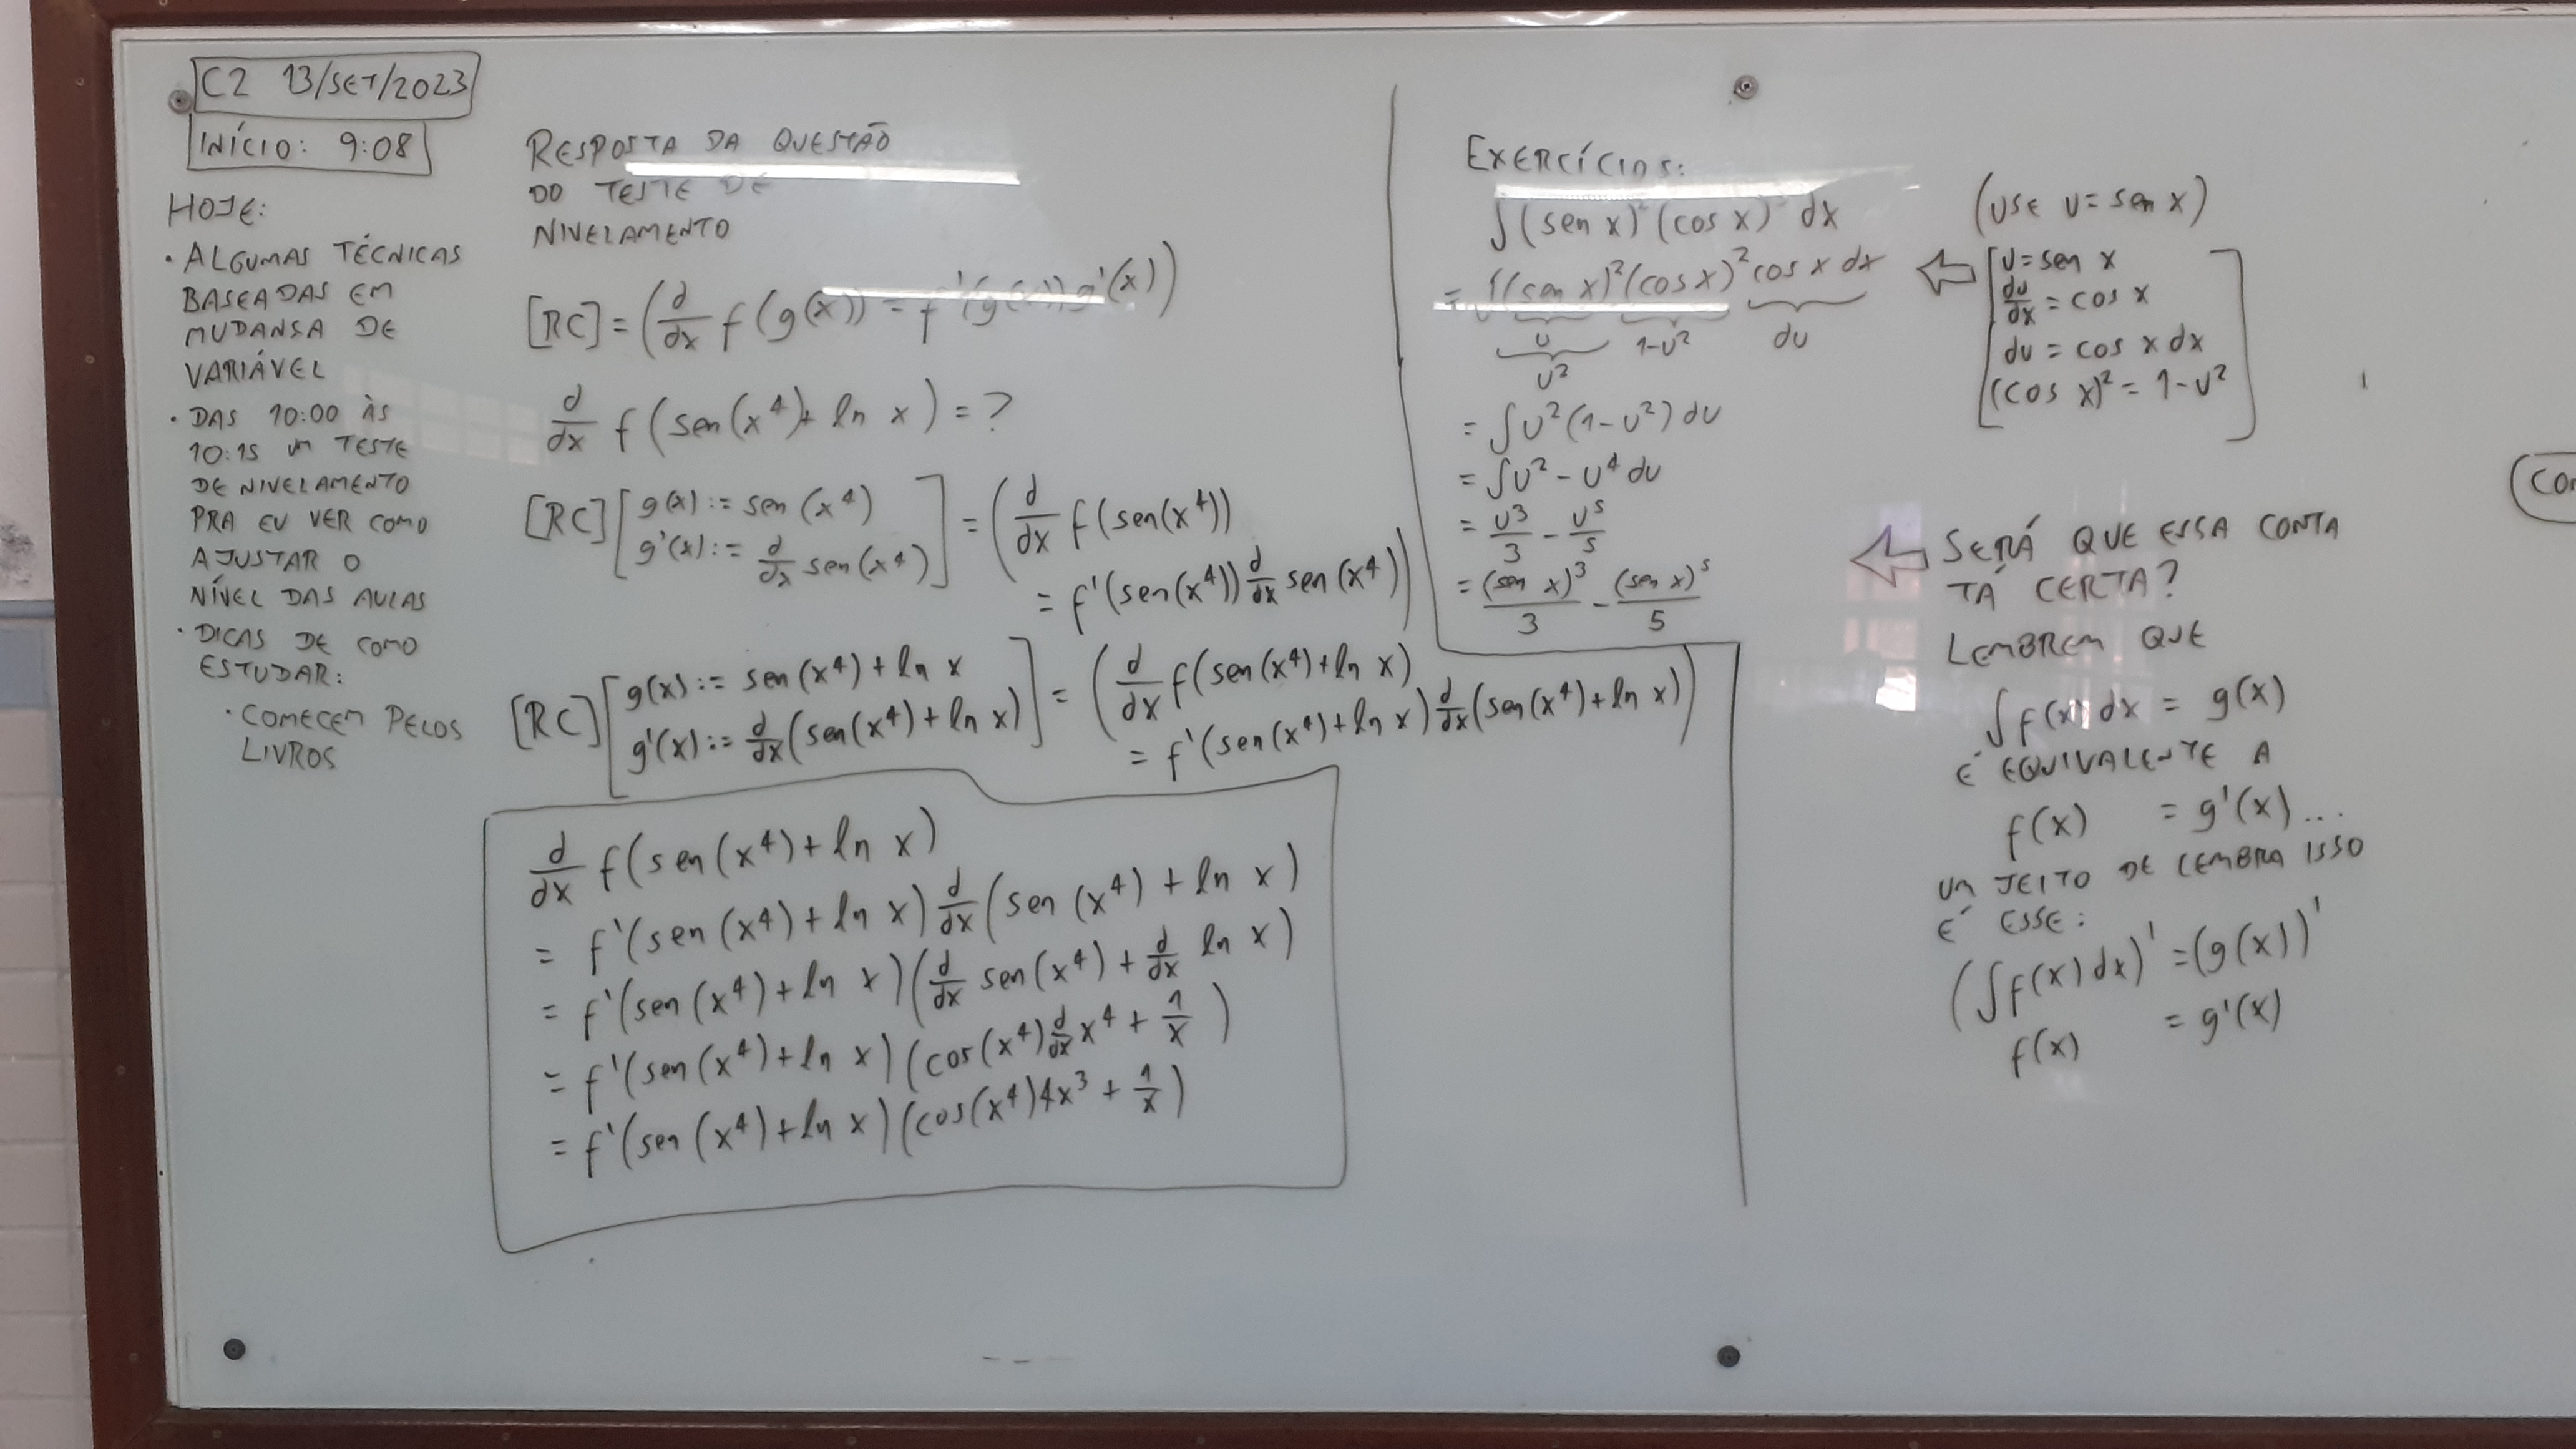 C2 13/SET/2023
INÍCIO: 9:08
HOJE:
• ALGUMAS TÉCNICAS
BASEADAS EM
MUDANSA DE
VARIÁVEL
• DAS 10:00 ÀS
10:15 UM TESTE
DE NIVELAMENTO
PRA EU VER COMO
AJUSTAR O
NÍVEL DAS AULAS
• DICAS DE COMO
ESTUDAR:
• COMECEM PELOS
LIVROS
RESPOSTA DA QUESTÃO
DO TESTE DE
NIVELAMENTO
[RC] = (d/dx f(g(x)) = f'(g(x))g'(x))
d/dx f(sen(x⁴)+ ln x) = ?
[RC] [g(x) := sen(x⁴)
g'(x) := d/dx sen(x⁴)] = (d/dx f(sen(x⁴))
= f'(sen(x⁴)) d/dx sen(x⁴))
[RC] [g(x) := sen(x⁴) + ln x
g'(x) := d/dx (sen(x⁴) + ln x)] = (d/dx f(sen(x⁴)+ln x)
= f'(sen(x⁴)+ln x) d/dx (sen(x⁴)+ln x))
d/dx f(sen(x⁴)+ln x)
= f'(sen(x⁴)+ln x) d/dx (sen(x⁴) + ln x)
= f'(sen(x⁴)+ln x)(d/dx sen(x⁴) + d/dx ln x)
= f'(sen(x⁴)+ln x)(cos(x⁴) d/dx x⁴ + 1/x)
= f'(sen(x⁴)+ln x)(cos(x⁴)4x³ + 1/x)
EXERCÍCIOS:
∫(sen x)²(cos x) dx (USE u = sen x)
= ∫(sen x)²(cos x)² cos x dx
u 1-u² du
u²
= ∫u²(1-u²) du
= ∫u² - u⁴ du
= u³/3 - u⁵/5
= (sen x)³/3 - (sen x)⁵/5
⇐ [u = sen x
du/dx = cos x
du = cos x dx
(cos x)² = 1-u²]
⇐ SERÁ QUE ESSA CONTA
TÁ CERTA?
LEMBREM QUE
∫f(x) dx = g(x)
É EQUIVALENTE A
f(x) = g'(x)...
UM JEITO DE LEMBRA ISSO
É ESSE:
(∫f(x) dx)' = (g(x))'
f(x) = g'(x)